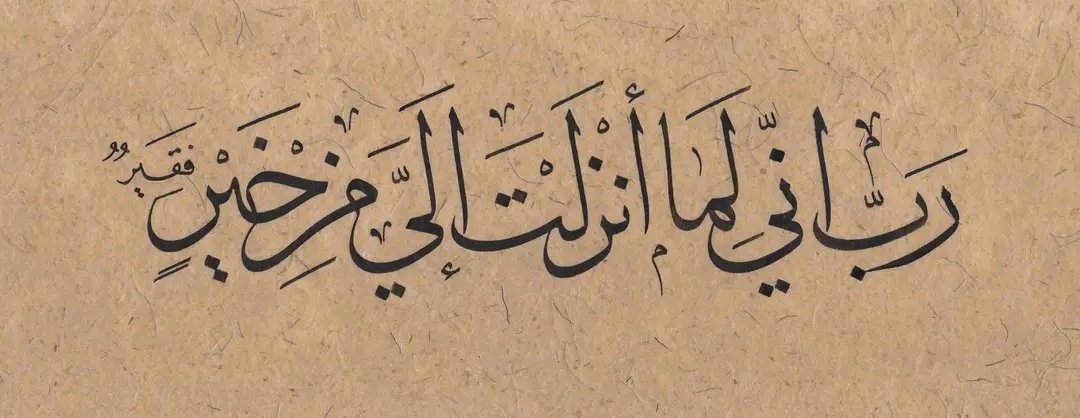 رَبَّ انِّي لِمَا أَنْزَلْتَ إِلَيَّ مِنْ خَيْرٍ فَقِيرٌ